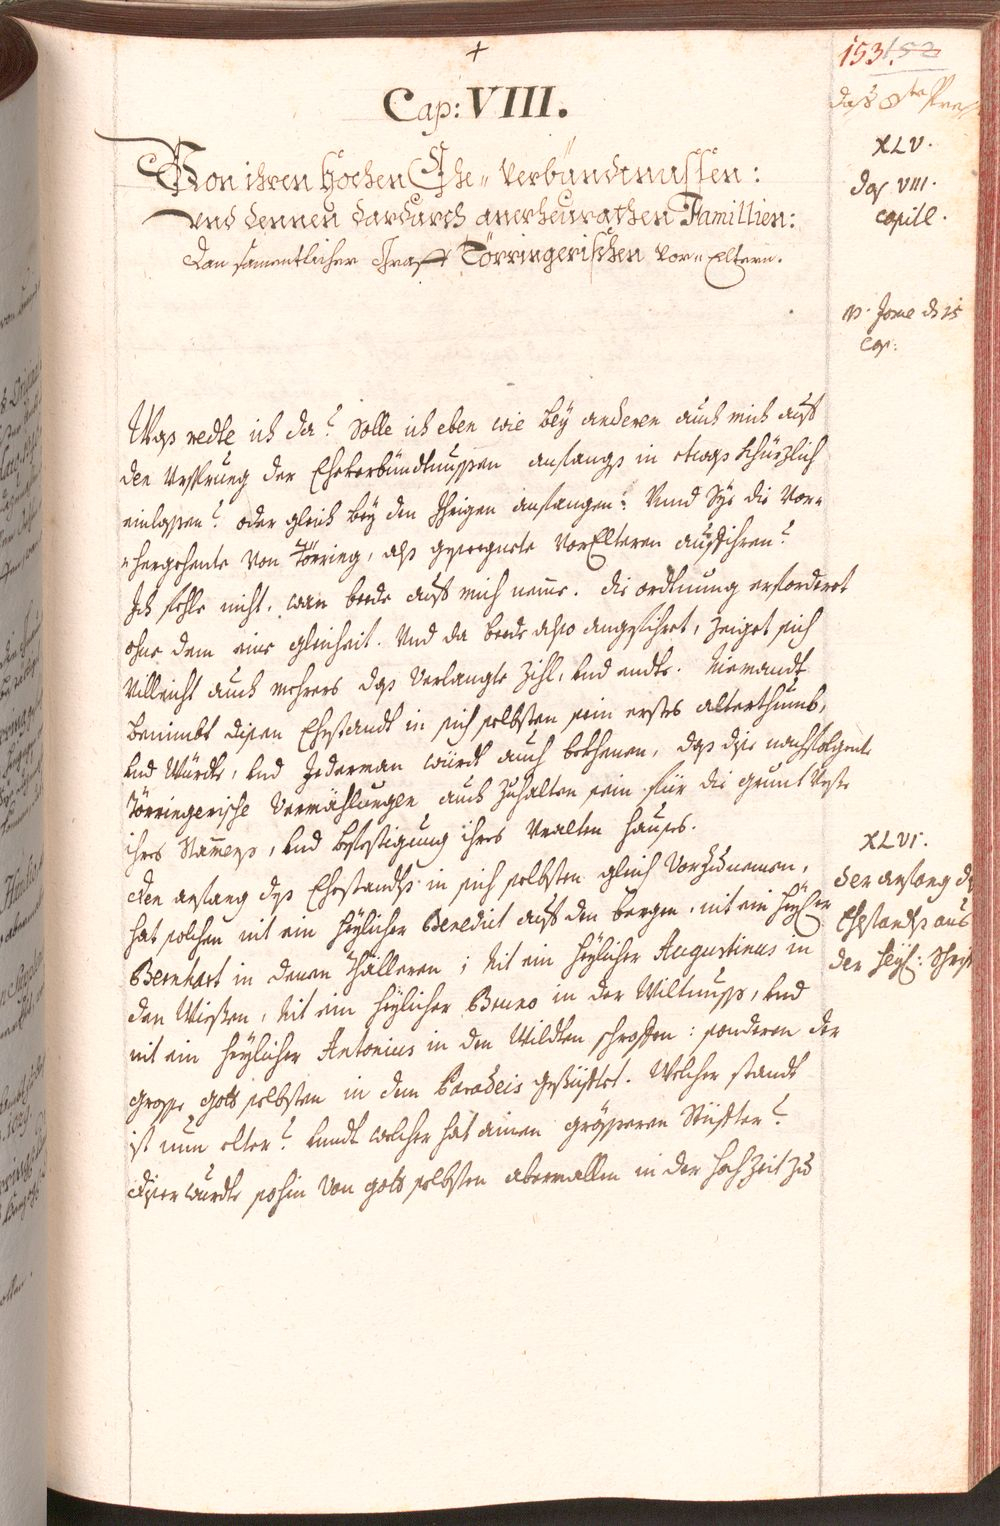 +
153. 152
Cap: VIII.
Von ihren hochen Ehe-verbündtnussen:
und dennen dardurch anerheurathen Familien:
Dan samentlicher Graff Törringerischen Vor-Eltern.
XLV.
Das VIII.
capitl.
Cap:
Was redte ich da? Solle ich eben wie bey anderen auch mich auf
den Ursprung der Eheverbündtnussen anfangs in etwas khürzlich
einlassen? oder gleich bey den Ihrigen anfangen? Unnd Sye die Vor-
hergehente von Törring, als geweste VorElteren ausfihren?
Ich fehle nicht, wan beede auf mich neme. Die ordtnung erforderet
ohne dem eine gleicheit. Und da beede also angefihret, zeiget sich
Villeicht auch mehrers das Verlangte Zihl, und endte. Niemandt
benimbt disen Ehestandt in sich selbsten sein erstes alterthumb,
und Würde, und Jederman würdt auch bekhenen, das dise nachfolgente
Törringerische Vermählungen auch Zuhalten sein für die grunt Veste
ihres Stamens, und befestigung ihres Uralten Hauses.
XLVI.
Der anfang des
Ehestandts aus
der heyl: Schrift
Den anfang des Ehestandts in sich selbsten gleich Vorzunemen,
hat solchen nit ein heylicher Benedict auf den bergen, nit ein heylicher
Bernhart in denen Thälleren; Nit ein heylicher Augustinus in
den Wiesen, Nit ein heylicher Bruno in der Wiltnuss, und
nit ein heylicher Antonius in den Wildten schroffen: sonderen der
grosse gott selbsten in dem Paradeis gestüfftet. Welcher standt
ist nun elter? unndt welcher hat ainen grösseren Stüfter?
Diser wurdte sohin von gott selbsten abermallen in der Hochzeit zu